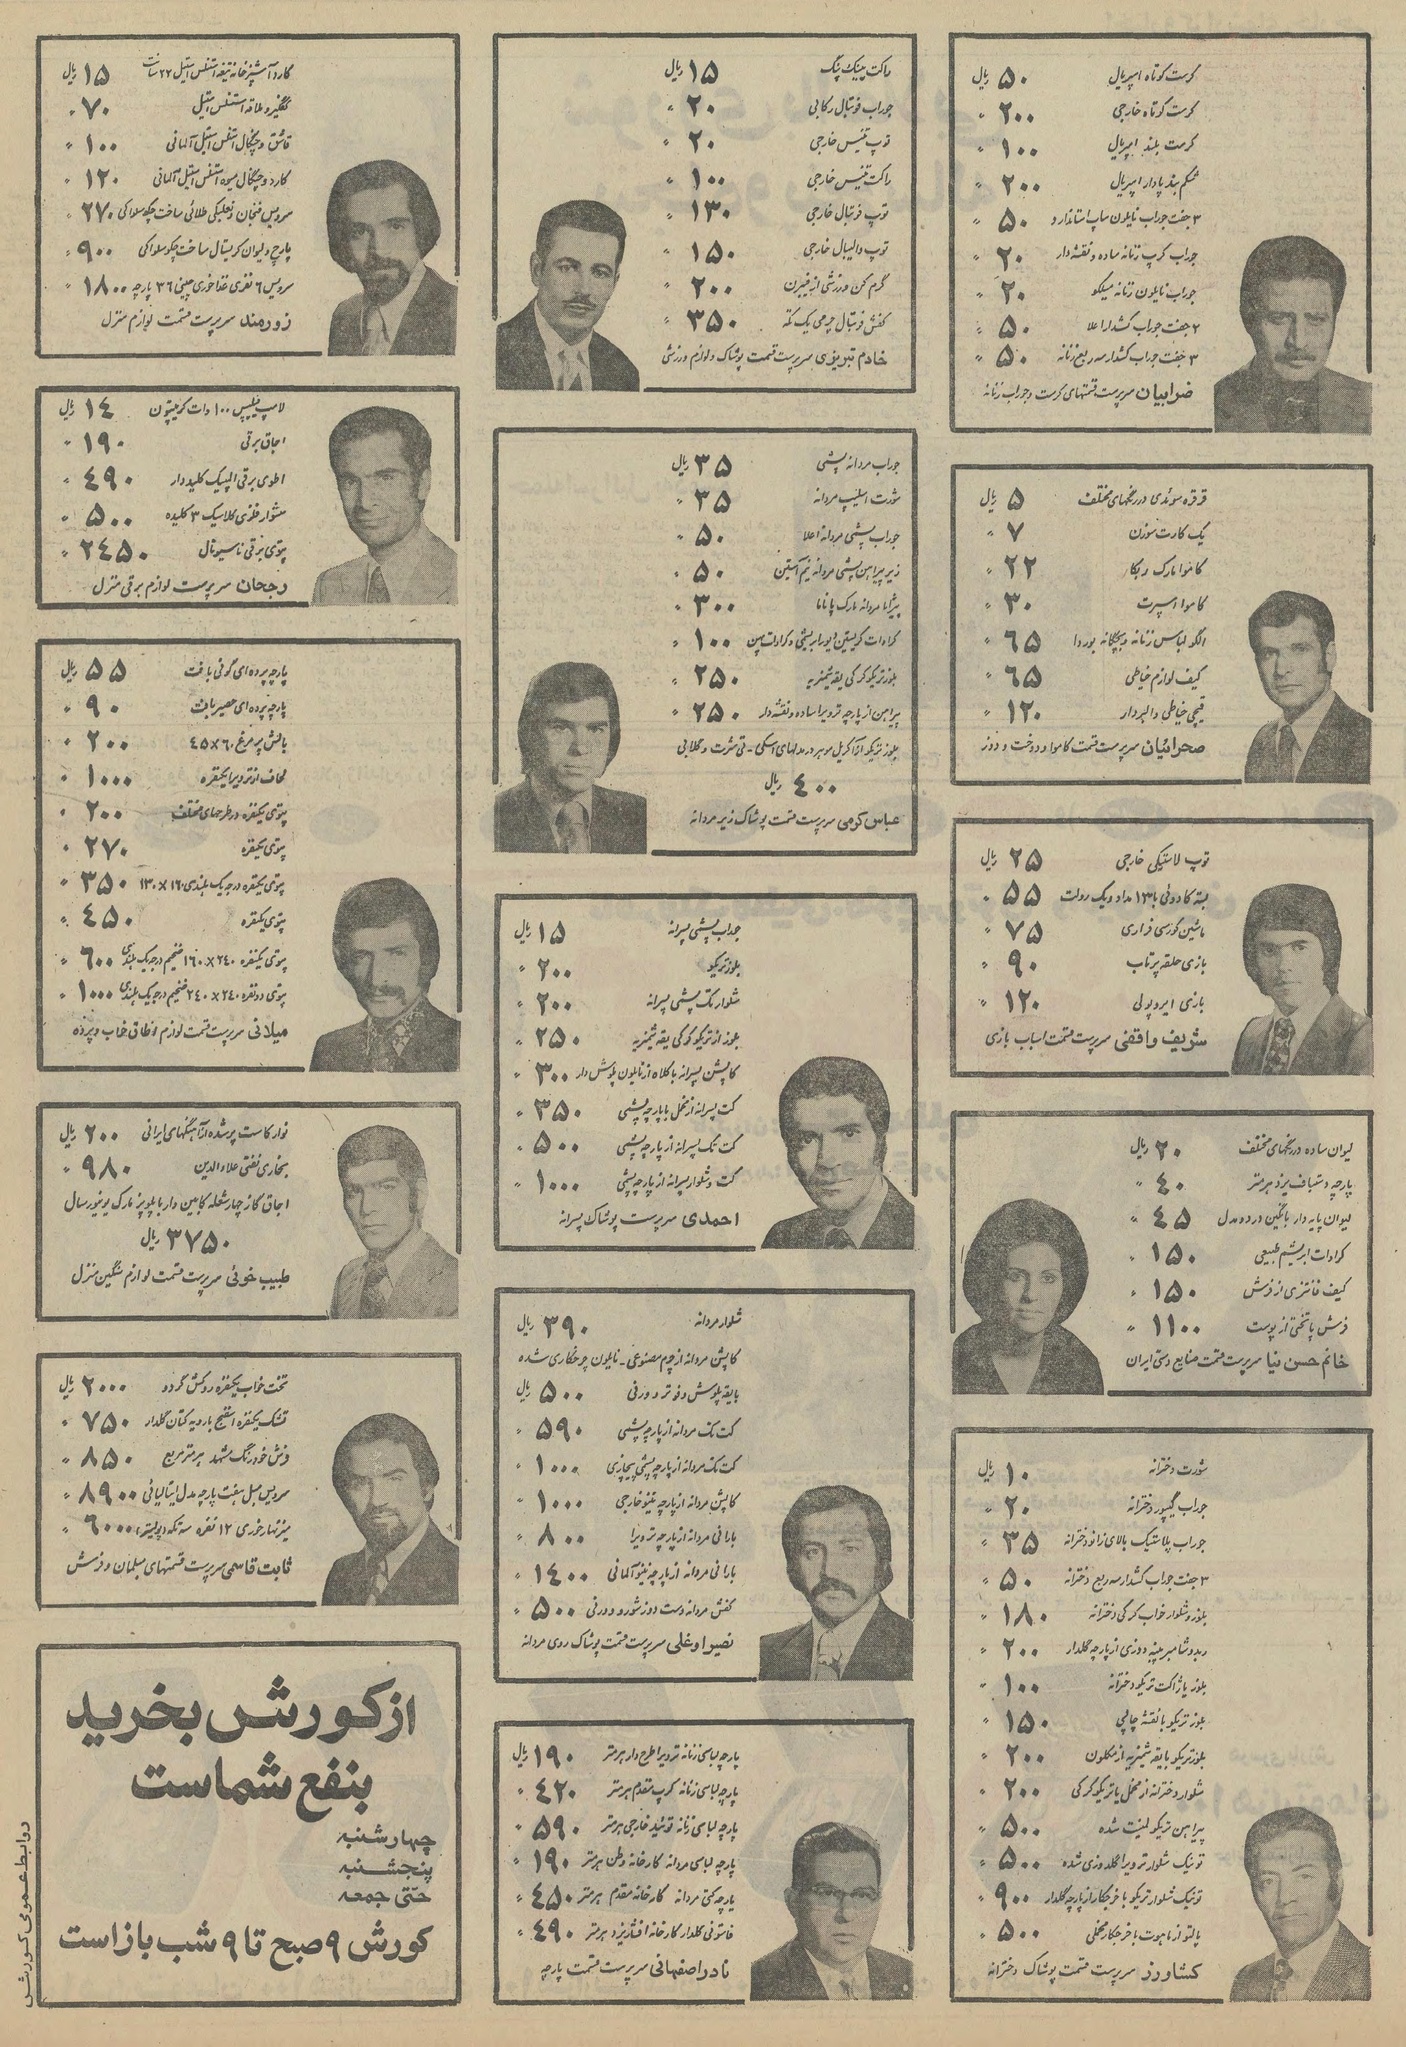 کرست کوتاه امپریال ۵۰ ریال
کرست کوتاه خارجی ۲۰۰ »
کرست بلند امپریال ۱۰۰ »
شکم بند پادار امپریال ۲۰۰ »
۳ جفت جوراب نایلون ساپ استاندارد ۵۰ »
جوراب کرپ زنانه ساده و نقشه دار ۲۰ »
جوراب نایلون زنانه مینکو ۲۰ »
۲ جفت جوراب کشدار اعلا ۵۰ »
۳ جفت جوراب کشدار سه ربع زنانه ۵۰ »
ضرابیان سرپرست قسمتهای کرست و جوراب زنانه
قرقره سوئدی در رنگهای مختلف ۵ ریال
یک کارت سوزن ۷ »
کاموا مارک ربکا ۲۲ »
کاموا اسپرت ۳۰ »
الگو لباس زنانه و بچگانه بوردا ۶۵ »
کیف لوازم خیاطی ۶۵ »
قیچی خیاطی دالبردار ۱۲۰ »
صحرائیان سرپرست قسمت کاموا و دوخت و دوز
توپ لاستیکی خارجی ۲۵ ریال
بسته کادوئی با ۱۳ مداد و یک رولت ۵۵ »
ماشین کورسی فراری ۷۵ »
بازی حلقه پرتاب ۹۰ »
بازی ایروپولی ۱۲۰ »
شریف واقفی سرپرست قسمت اسباب بازی
لیوان ساده در رنگهای مختلف ۲۰ ریال
پارچه دستباف یزد هر متر ۴۰ »
لیوان پایه دار با نگین در دو مدل ۴۵ »
کراوات ابریشم طبیعی ۱۵۰ »
کیف فانتزی از فرش ۱۵۰ »
فرش پاتختی از پوست ۱۱۰۰ »
خانم حسن نیا سرپرست قسمت صنایع دستی ایران
شورت دخترانه ۱۰ ریال
جوراب گیپور دخترانه ۲۰ »
جوراب پلاستیک بالای زانو دخترانه ۳۵ »
۳ جفت جوراب کشدار سه ربع دخترانه ۵۰ »
بلوز و شلوار خواب کرکی دخترانه ۱۸۰ »
ربدوشامبر پنبه دوزی از پارچه گلدار ۲۰۰ »
بلوز یا ژاکت تریکو دخترانه ۱۰۰ »
بلوز تریکو با نقشه چاپی ۱۵۰ »
بلوز تریکو با یقه شمیزیه از مکلون ۲۰۰ »
شلوار دخترانه از مخمل یا تریکو کرکی ۲۰۰ »
پیراهن تریکو لمینت شده ۵۰۰ »
تونیک شلوار ترویرا گلدوزی شده ۵۰۰ »
تونیک شلوار تریکو با خرجکار از پارچه گلدار ۹۰۰ »
پالتو از ماهوت با خرجکار مخملی ۵۰۰ »
کشاورز سرپرست قسمت پوشاک دخترانه
راکت پینگ پنگ ۱۵ ریال
جوراب فوتبال رکابی ۲۰ »
توپ تنیس خارجی ۲۰ »
راکت تنیس خارجی ۱۰۰ »
توپ فوتبال خارجی ۱۳۰ »
توپ والیبال خارجی ۱۵۰ »
گرم کن ورزشی از فیبرن ۲۰۰ »
کفش فوتبال چرمی یک تکه ۳۵۰ »
خادم تبریزی سرپرست قسمت پوشاک و لوازم ورزشی
جوراب مردانه پشمی ۳۵ ریال
شورت اسلیپ مردانه ۳۵ »
جوراب پشمی مردانه اعلا ۵۰ »
زیرپیراهن پشمی مردانه نیم آستین ۵۰ »
پیژاما مردانه مارک پاناما ۳۰۰ »
کراوات کریستین دیور ابریشمی و کراوات پهن ۱۰۰ »
بلوز تریکو کرکی یقه شمیزیه ۲۵۰ »
پیراهن از پارچه ترویرا ساده و نقشه دار ۲۵۰ »
بلوز تریکو از آکریل موهر در مدلهای اسکی - تی شرت و گلابی
۴۰۰ ریال
عباس کرمی سرپرست قسمت پوشاک زیر مردانه
جوراب پشمی پسرانه ۱۵ ریال
بلوز تریکو ۲۰۰ »
شلوار تک پشمی پسرانه ۲۰۰ »
بلوز از تریکو کرکی یقه شمیزیه ۲۵۰ »
کاپشن پسرانه با کلاه از نایلون پلوش دار ۳۰۰ »
کت پسرانه از مخمل یا پارچه پشمی ۳۵۰ »
کت تک پسرانه از پارچه پشمی ۵۰۰ »
کت و شلوار پسرانه از پارچه پشمی ۱۰۰۰ »
احمدی سرپرست پوشاک پسرانه
شلوار مردانه ۳۹۰ ریال
کاپشن مردانه از چرم مصنوعی - نایلون چرخکاری شده
با یقه پلوش و فوتر و ورنی ۵۰۰ ریال
کت تک مردانه از پارچه پشمی ۵۹۰ »
کت تک مردانه از پارچه پشمی پیچازی ۱۰۰۰ »
کاپشن مردانه از پارچه نینو خارجی ۱۰۰۰ »
بارانی مردانه از پارچه ترویرا ۸۰۰ »
بارانی مردانه از پارچه نینو آلمانی ۱۴۰۰ »
کفش مردانه دست دوز شورو و ورنی ۵۰۰ »
نصیراوغلی سرپرست قسمت پوشاک روی مردانه
پارچه لباسی زنانه ترویرا طرح دار هر متر ۱۹۰ ریال
پارچه لباسی زنانه کرپ مقدم هر متر ۴۲۰ »
پارچه لباسی زنانه توئید خارجی هر متر ۵۹۰ »
پارچه لباسی مردانه کارخانه وطن هر متر ۱۹۰ »
پارچه کتی مردانه کارخانه مقدم هر متر ۴۵۰ »
فاستونی گلدار کارخانه افشار یزد هر متر ۴۹۰ »
نادر اصفهانی سرپرست قسمت پارچه
کارد آشپزخانه تیغه استنلس استیل ۲۲ سانت ۱۵ ریال
کفگیر و ملاقه استنلس استیل ۷۰ »
قاشق و چنگال استنلس استیل آلمانی ۱۰۰ »
کارد و چنگال میوه استنلس استیل آلمانی ۱۲۰ »
سرویس فنجان و نعلبکی طلائی ساخت چکوسلواکی ۲۷۰ »
پارچ و لیوان کریستال ساخت چکوسلواکی ۹۰۰ »
سرویس ۶ نفری غذاخوری چینی ۳۶ پارچه ۱۸۰۰ »
زورمند سرپرست قسمت لوازم منزل
لامپ فیلیپس ۱۰۰ وات کریپتون ۱۴ ریال
اجاق برقی ۱۹۰ »
اطوی برقی المپیک کلیددار ۴۹۰ »
سشوار فلزی کلاسیک ۳ کلیده ۵۰۰ »
پتوی برقی ناسیونال ۲۴۵۰ »
رجحان سرپرست لوازم برقی منزل
پارچه پرده ای گونی بافت ۵۵ ریال
پارچه پرده ای حصیر بافت ۹۰ »
بالش پر مرغ ۶۰×۴۵ ۲۰۰ »
لحاف از ترویرا یکنفره ۱۰۰۰ »
پتوی یکنفره در طرحهای مختلف ۲۰۰ »
پتوی یکنفره ۲۷۰ »
پتوی یکنفره درجه یک بلندی ۱۶۰×۱۳۰ ۳۵۰ »
پتوی یکنفره ۴۵۰ »
پتوی یکنفره ۲۴۰×۱۶۰ ضخیم درجه یک بلندی ۶۰۰ »
پتوی دو نفره ۲۴۰×۲۴۰ ضخیم درجه یک بلندی ۱۰۰۰ »
میلانی سرپرست قسمت لوازم اطاق خواب و پرده
نوار کاست پر شده از آهنگهای ایرانی ۲۰۰ ریال
بخاری نفتی علاءالدین ۹۸۰ »
اجاق گاز چهار شعله کابین دار با پلوپز مارک یونیورسال
۳۷۵۰ ریال
طبیب خوئی سرپرست قسمت لوازم سنگین منزل
تخت خواب یکنفره روکش گردو ۲۰۰۰ ریال
تشک یکنفره اسفنج با رویه کتان گلدار ۷۵۰ »
فرش خودرنگ مشهد هر متر مربع ۸۵۰ »
سرویس مبل هفت پارچه مدل ایتالیائی ۸۹۰۰ »
میز نهارخوری ۱۲ نفره سه تکه (پولیستر) ۶۰۰۰ »
ثابت قاسمی سرپرست قسمتهای مبلمان و فرش
از کورش بخرید
بنفع شماست
چهارشنبه
پنجشنبه
حتی جمعه
کورش ۹ صبح تا ۹ شب باز است
روابط عمومی کورش